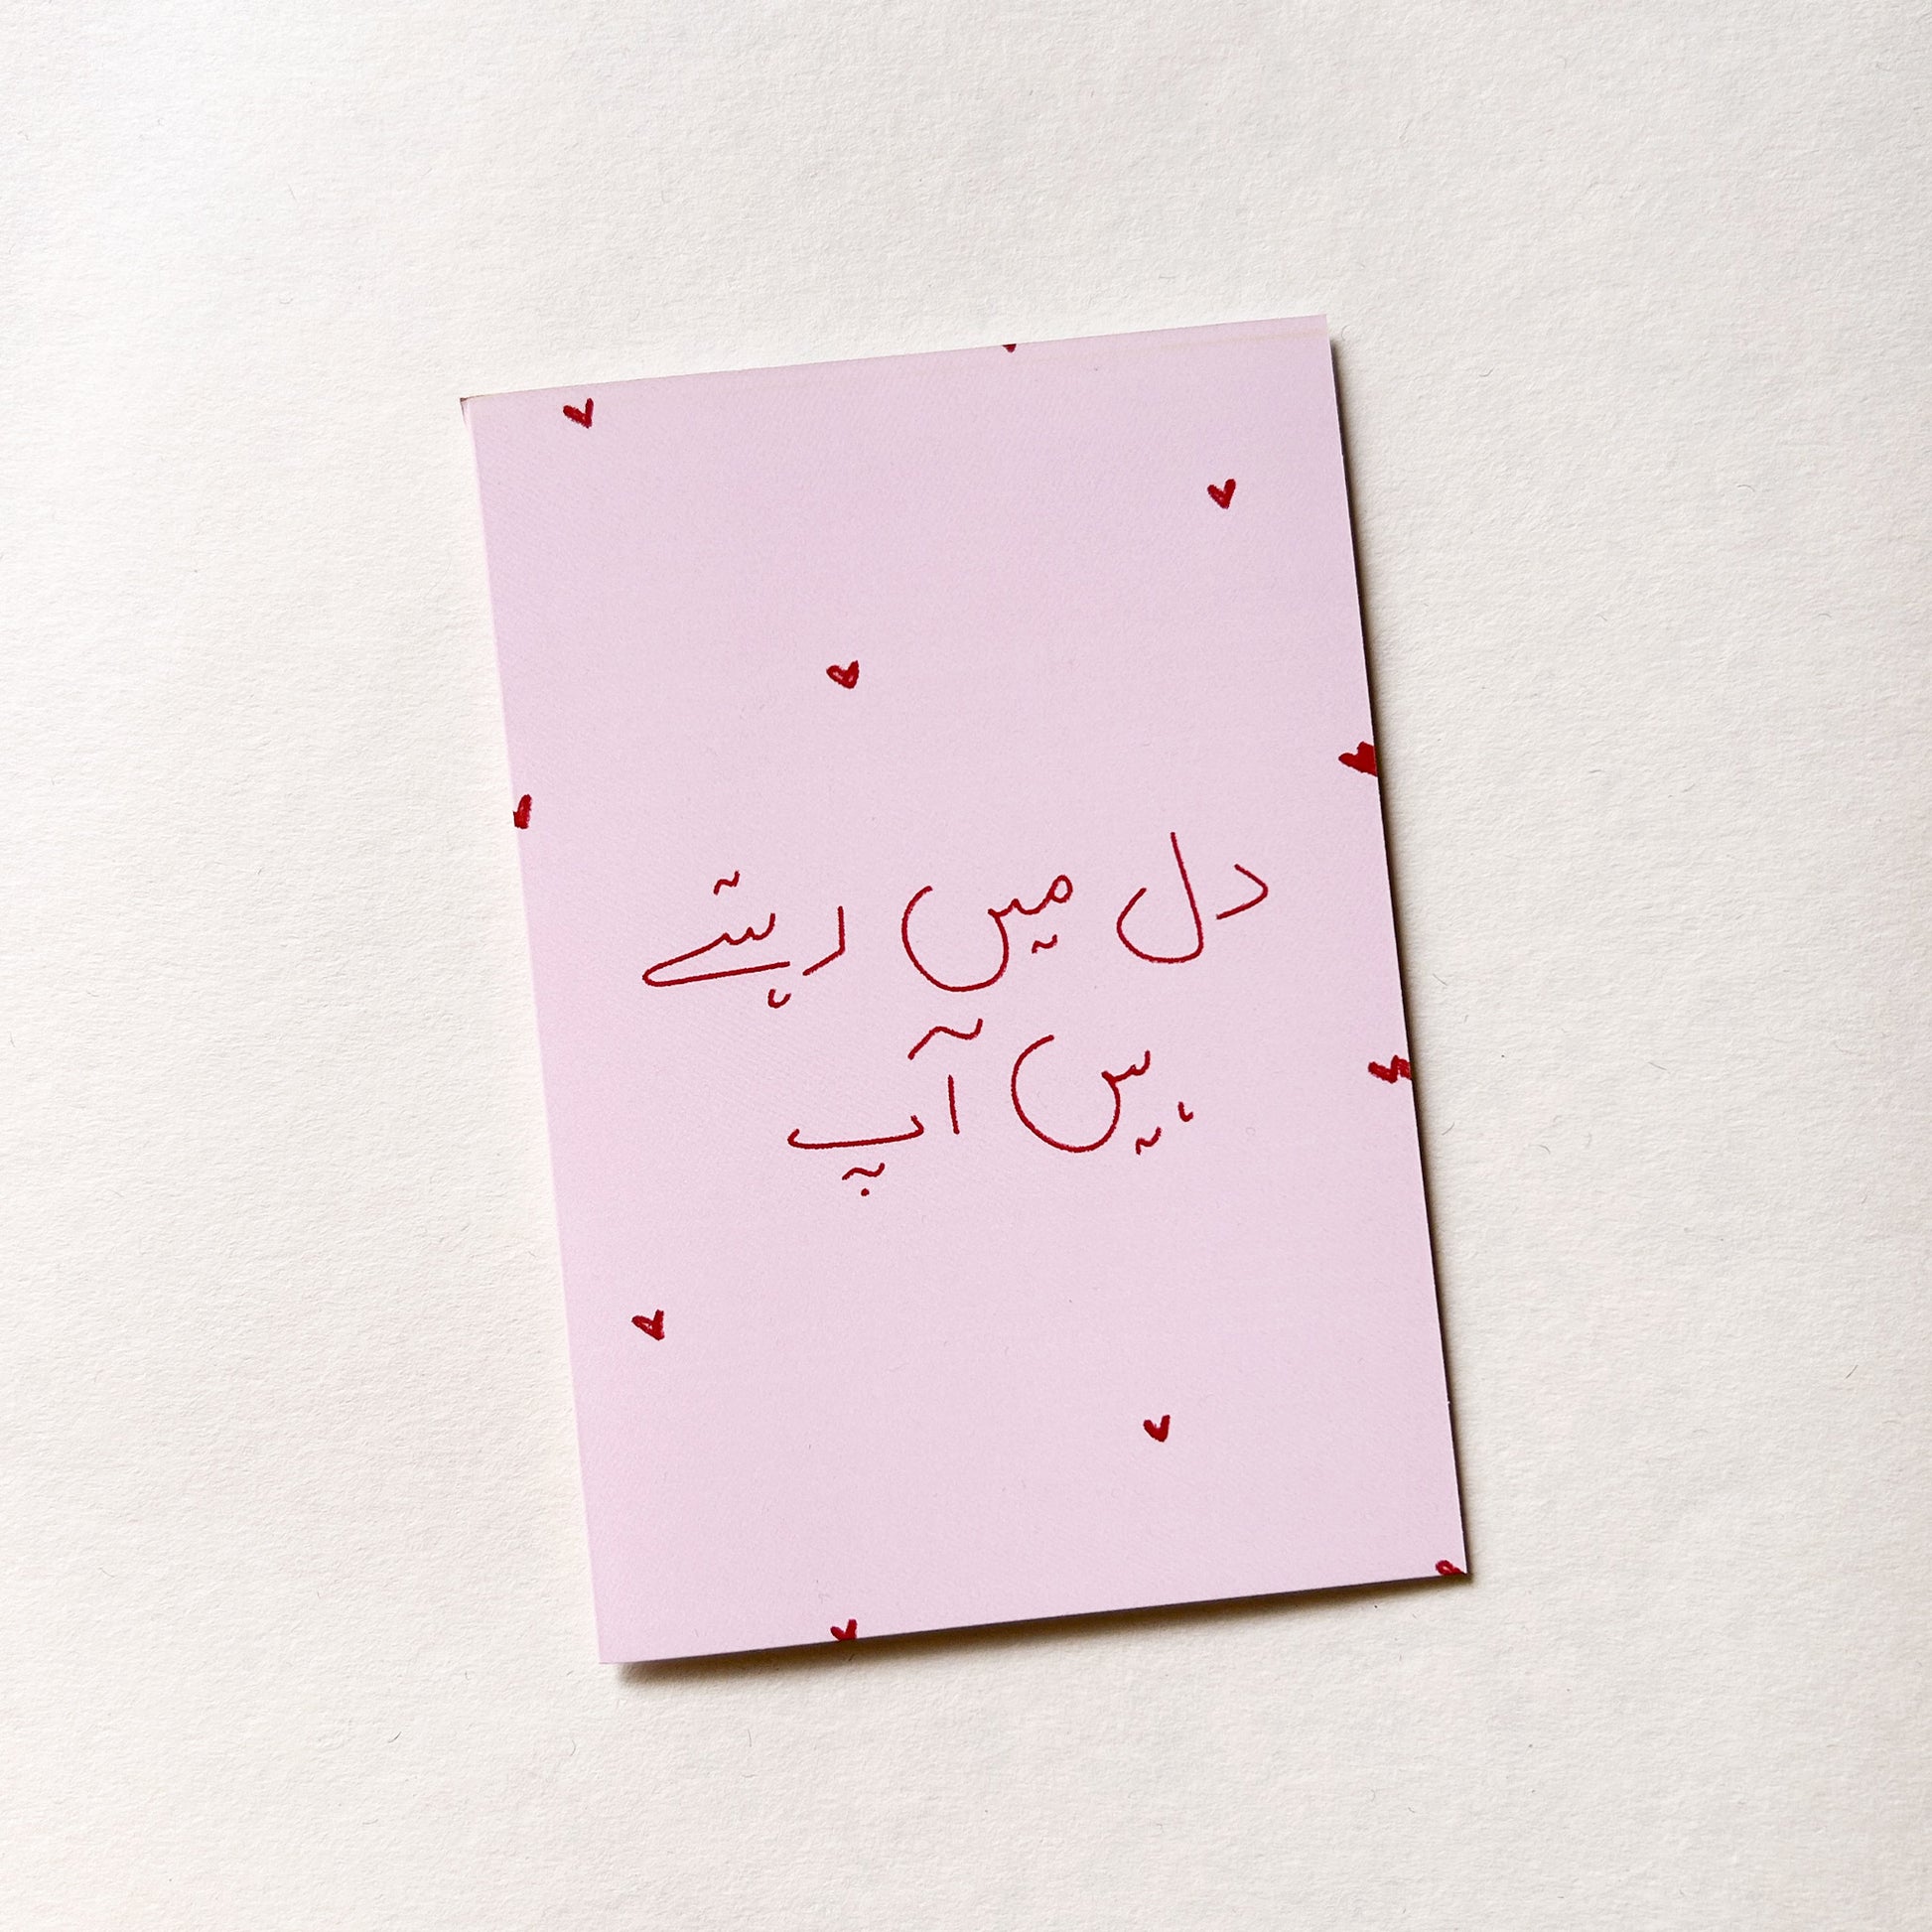 دل میں رہتے
ہیں آپ